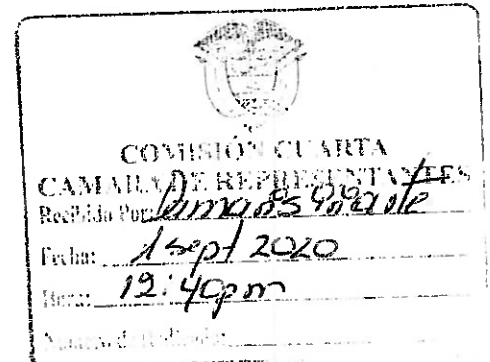 COMISIÓN CUARTA
CAMARA DE REPRESENTANTES
Recibido Por:
Fecha: 1 sept 2020
Hora: 12:40pm